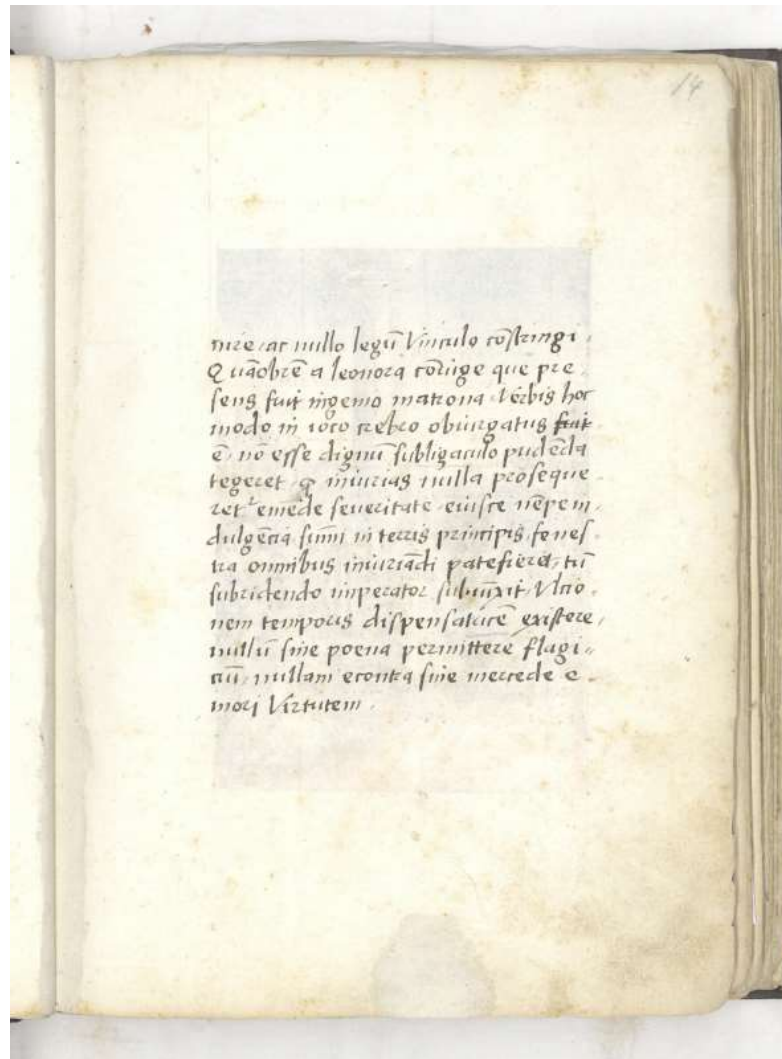 14
nire, ac nullo legū Vinculo cōstringi,
Quāobrē a leonora cōiuge que pre-
sens fuit ingenio matrona Verbis hoc
modo in ioco crebro obiurgatus fuit
ē, nō esse dignū subligaculo pudēda
tegeret, iniurias nulla proseque-
ret severitate, nēpe in-
dulgēcia sūmi in terris principis, fenes-
tra omnibus iniuriādi patefieret, tū
subridendo imperator subiūxit, Vltio-
nem temporis dispensatricē existere,
nullū sine poena permittere flagi-
ciū, nullam econtra sine mercede e-
mori Virtutem.